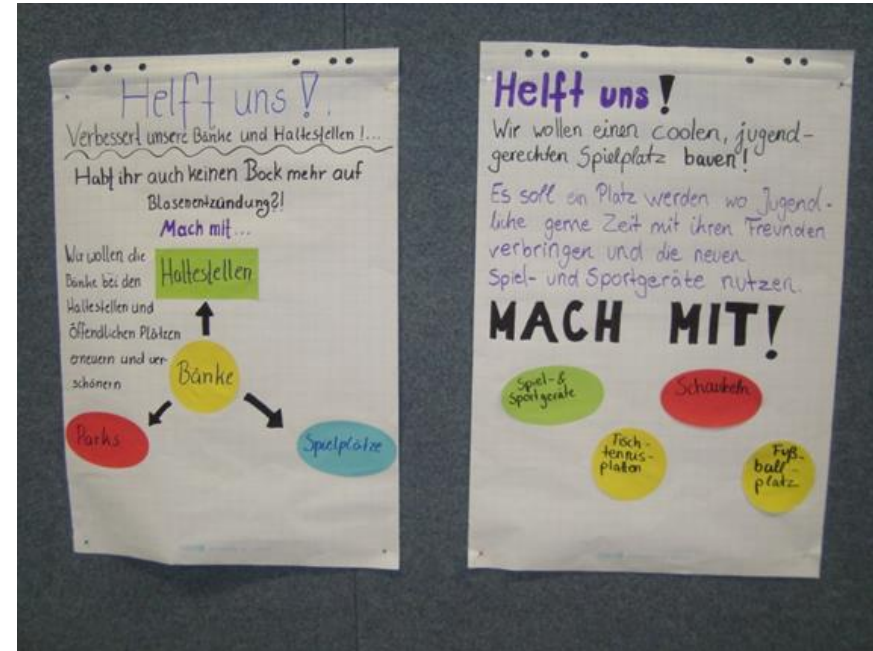 Helft uns!
Verbessert unsere Bänke und Haltestellen!...
Habt ihr auch keinen Bock mehr auf
Blasenentzündung?!
Mach mit...
Wir wollen die
Bänke bei den
Haltestellen und
Öffendlichen Plätzen
erneuern und ver-
schönern
Haltestellen
Bänke
Parks
Spielplätze
Helft uns!
Wir wollen einen coolen, jugend-
gerechten Spielplatz bauen!
Es soll ein Platz werden wo Jugend-
liche gerne Zeit mit ihren Freunden
verbringen und die neuen
Spiel- und Sportgeräte nutzen.
MACH MIT!
Spiel-&
Sportgeräte
Schaukeln
Tisch-
tennis-
platten
Fuß-
ball-
platz